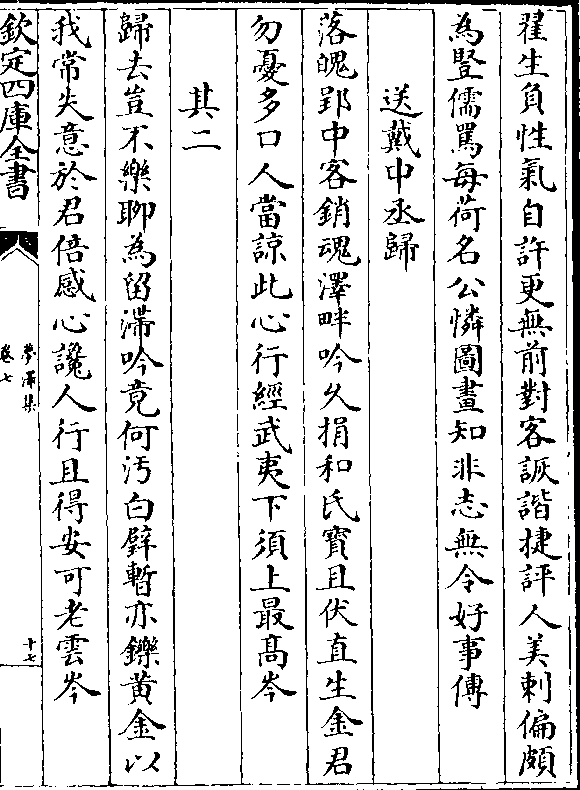 翟生負性氣自許更無前對客詼諧捷評人美刺偏頗
為豎儒罵每荷名公憐圖畫知非志無令好事傳
送戴中丞歸
落魄郢中客銷魂澤畔吟久捐和氏寳且伏直生金君
勿憂多口人當諒此心行經武夷下須上最髙岑
其二
歸去豈不樂聊為留滯吟竟何汚白璧暫亦鑠黄金以
我常失意於君倍感心讒人行且得安可老雲岑
欽定四庫全書
夢澤集
卷七
十七